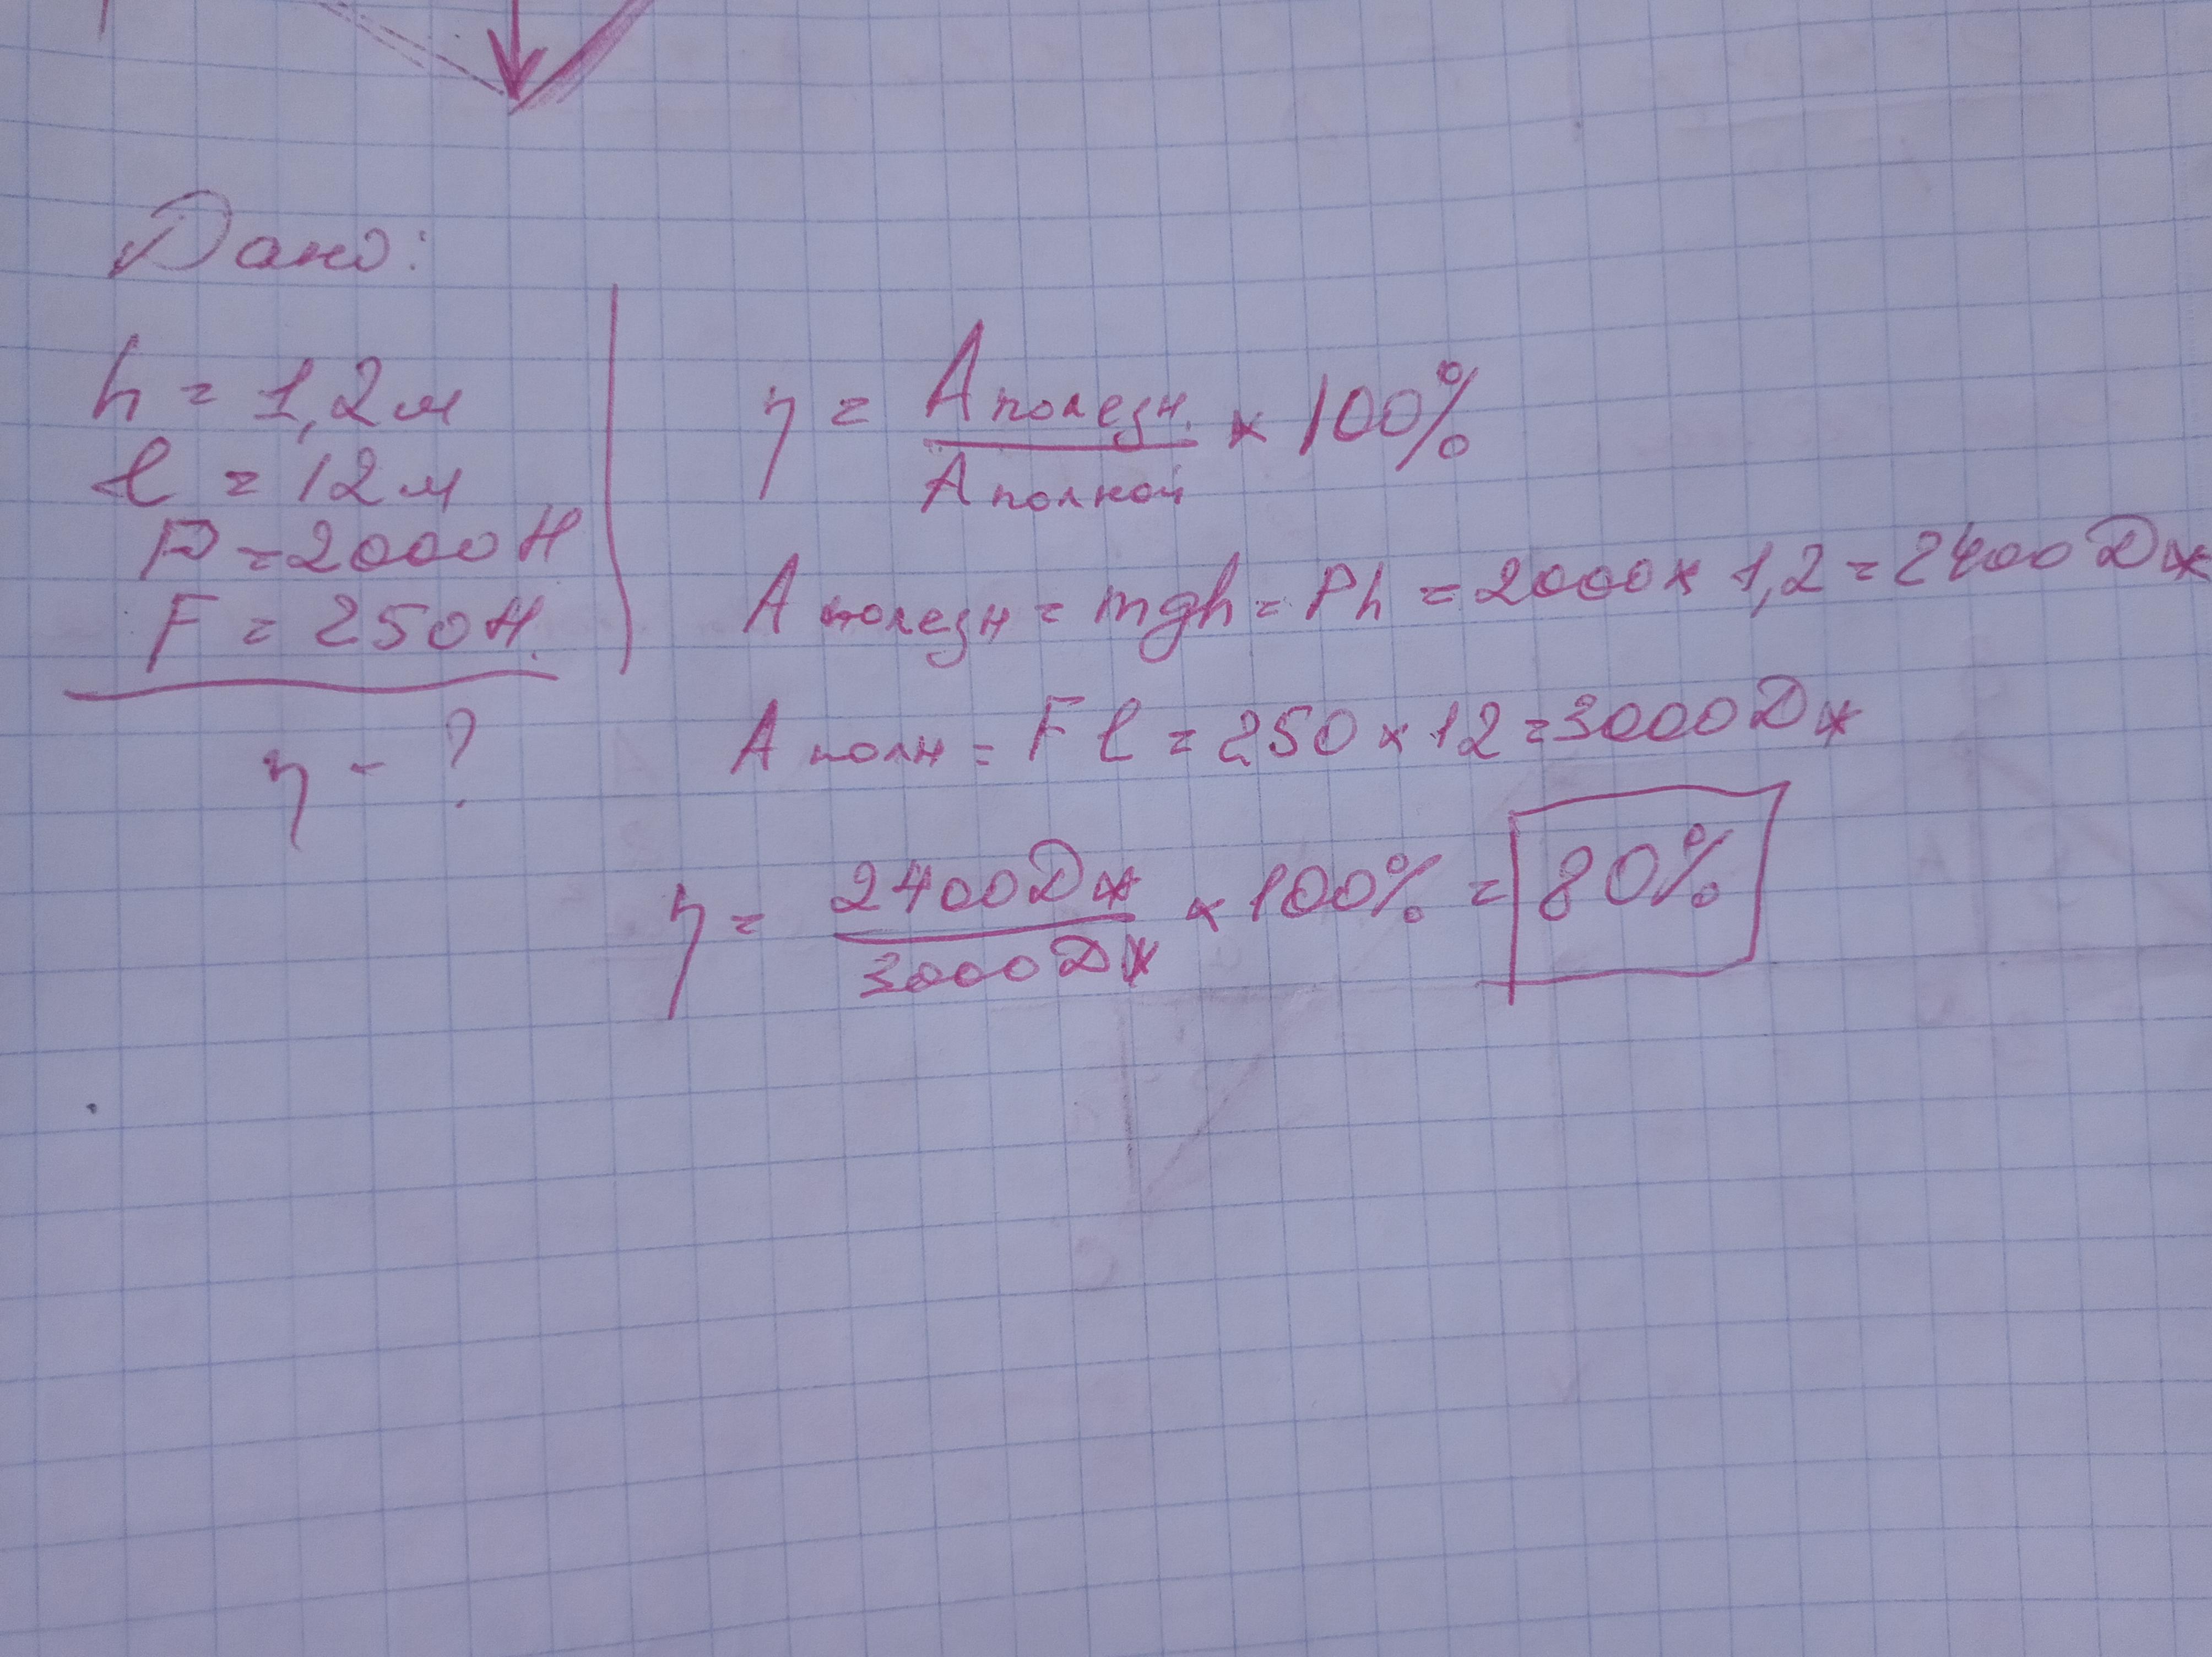 Дано:
h = 1,2 м
l = 12 м
P = 2000 Н
F = 250 Н.
η - ?
η = A полезн. / A полной × 100%
A полезн = mgh = Ph = 2000 × 1,2 = 2400 Дж
A полн = Fl = 250 × 12 = 3000 Дж
η = 2400 Дж / 3000 Дж × 100% = 80%